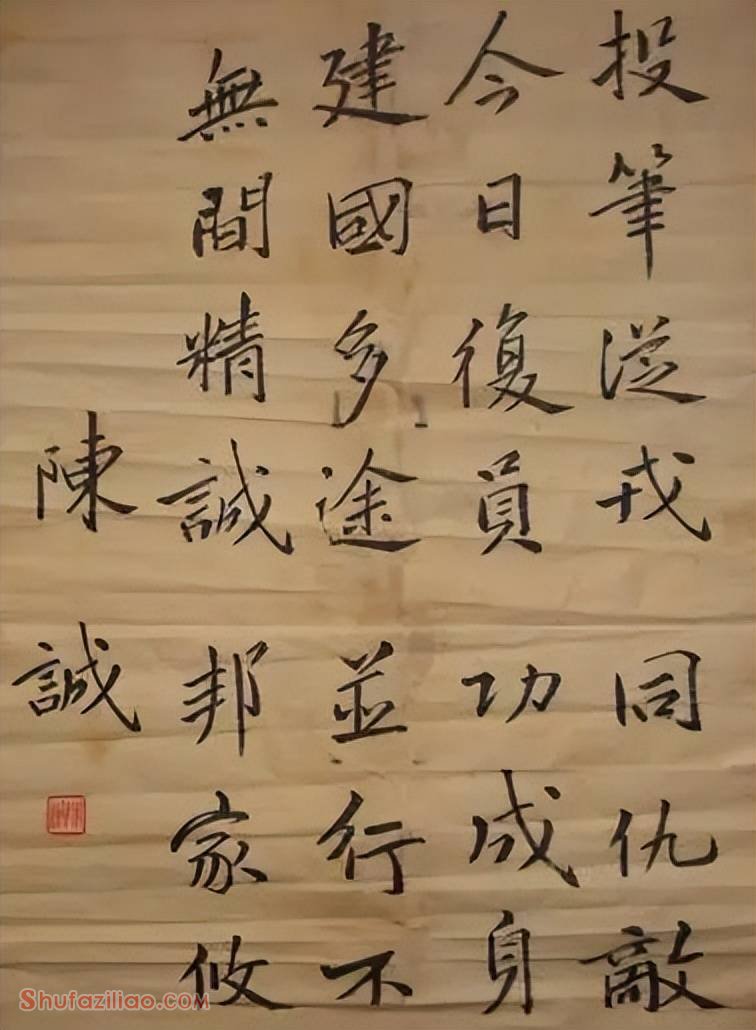 投筆從戎同仇敵
今日復員功成身
建國多途並行不
無間精誠邦家攸
陳誠
Shufaziliao.com